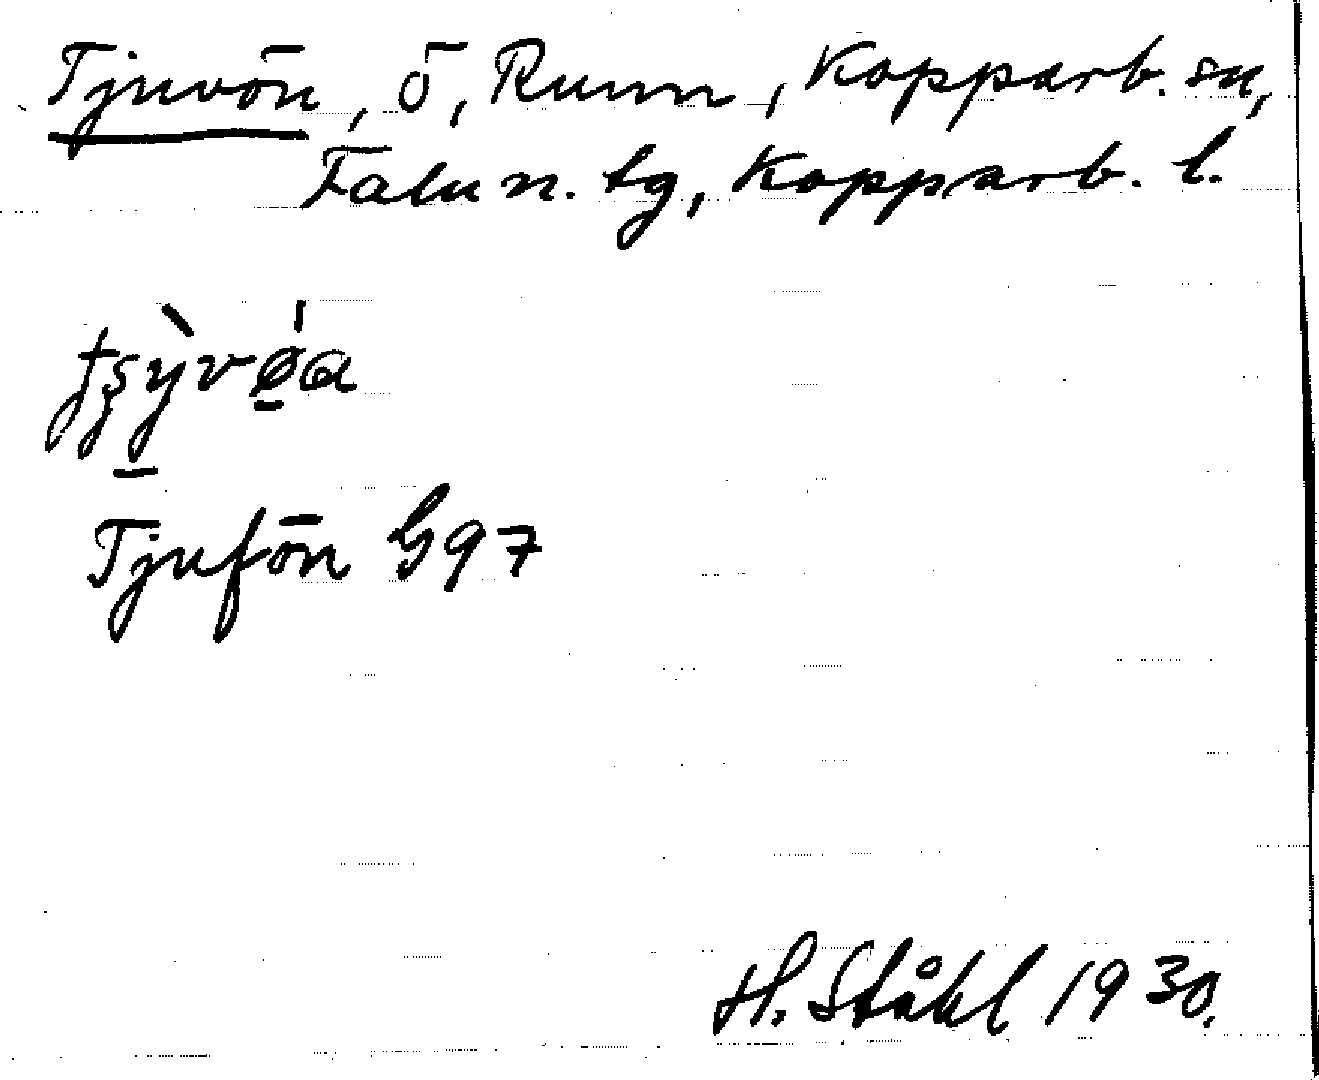 Tjuvön, ö, Runn, Kopparb. sn,
Falu n. tg, Kopparb. l.
Tjufön G97
H. Ståhl 1930.